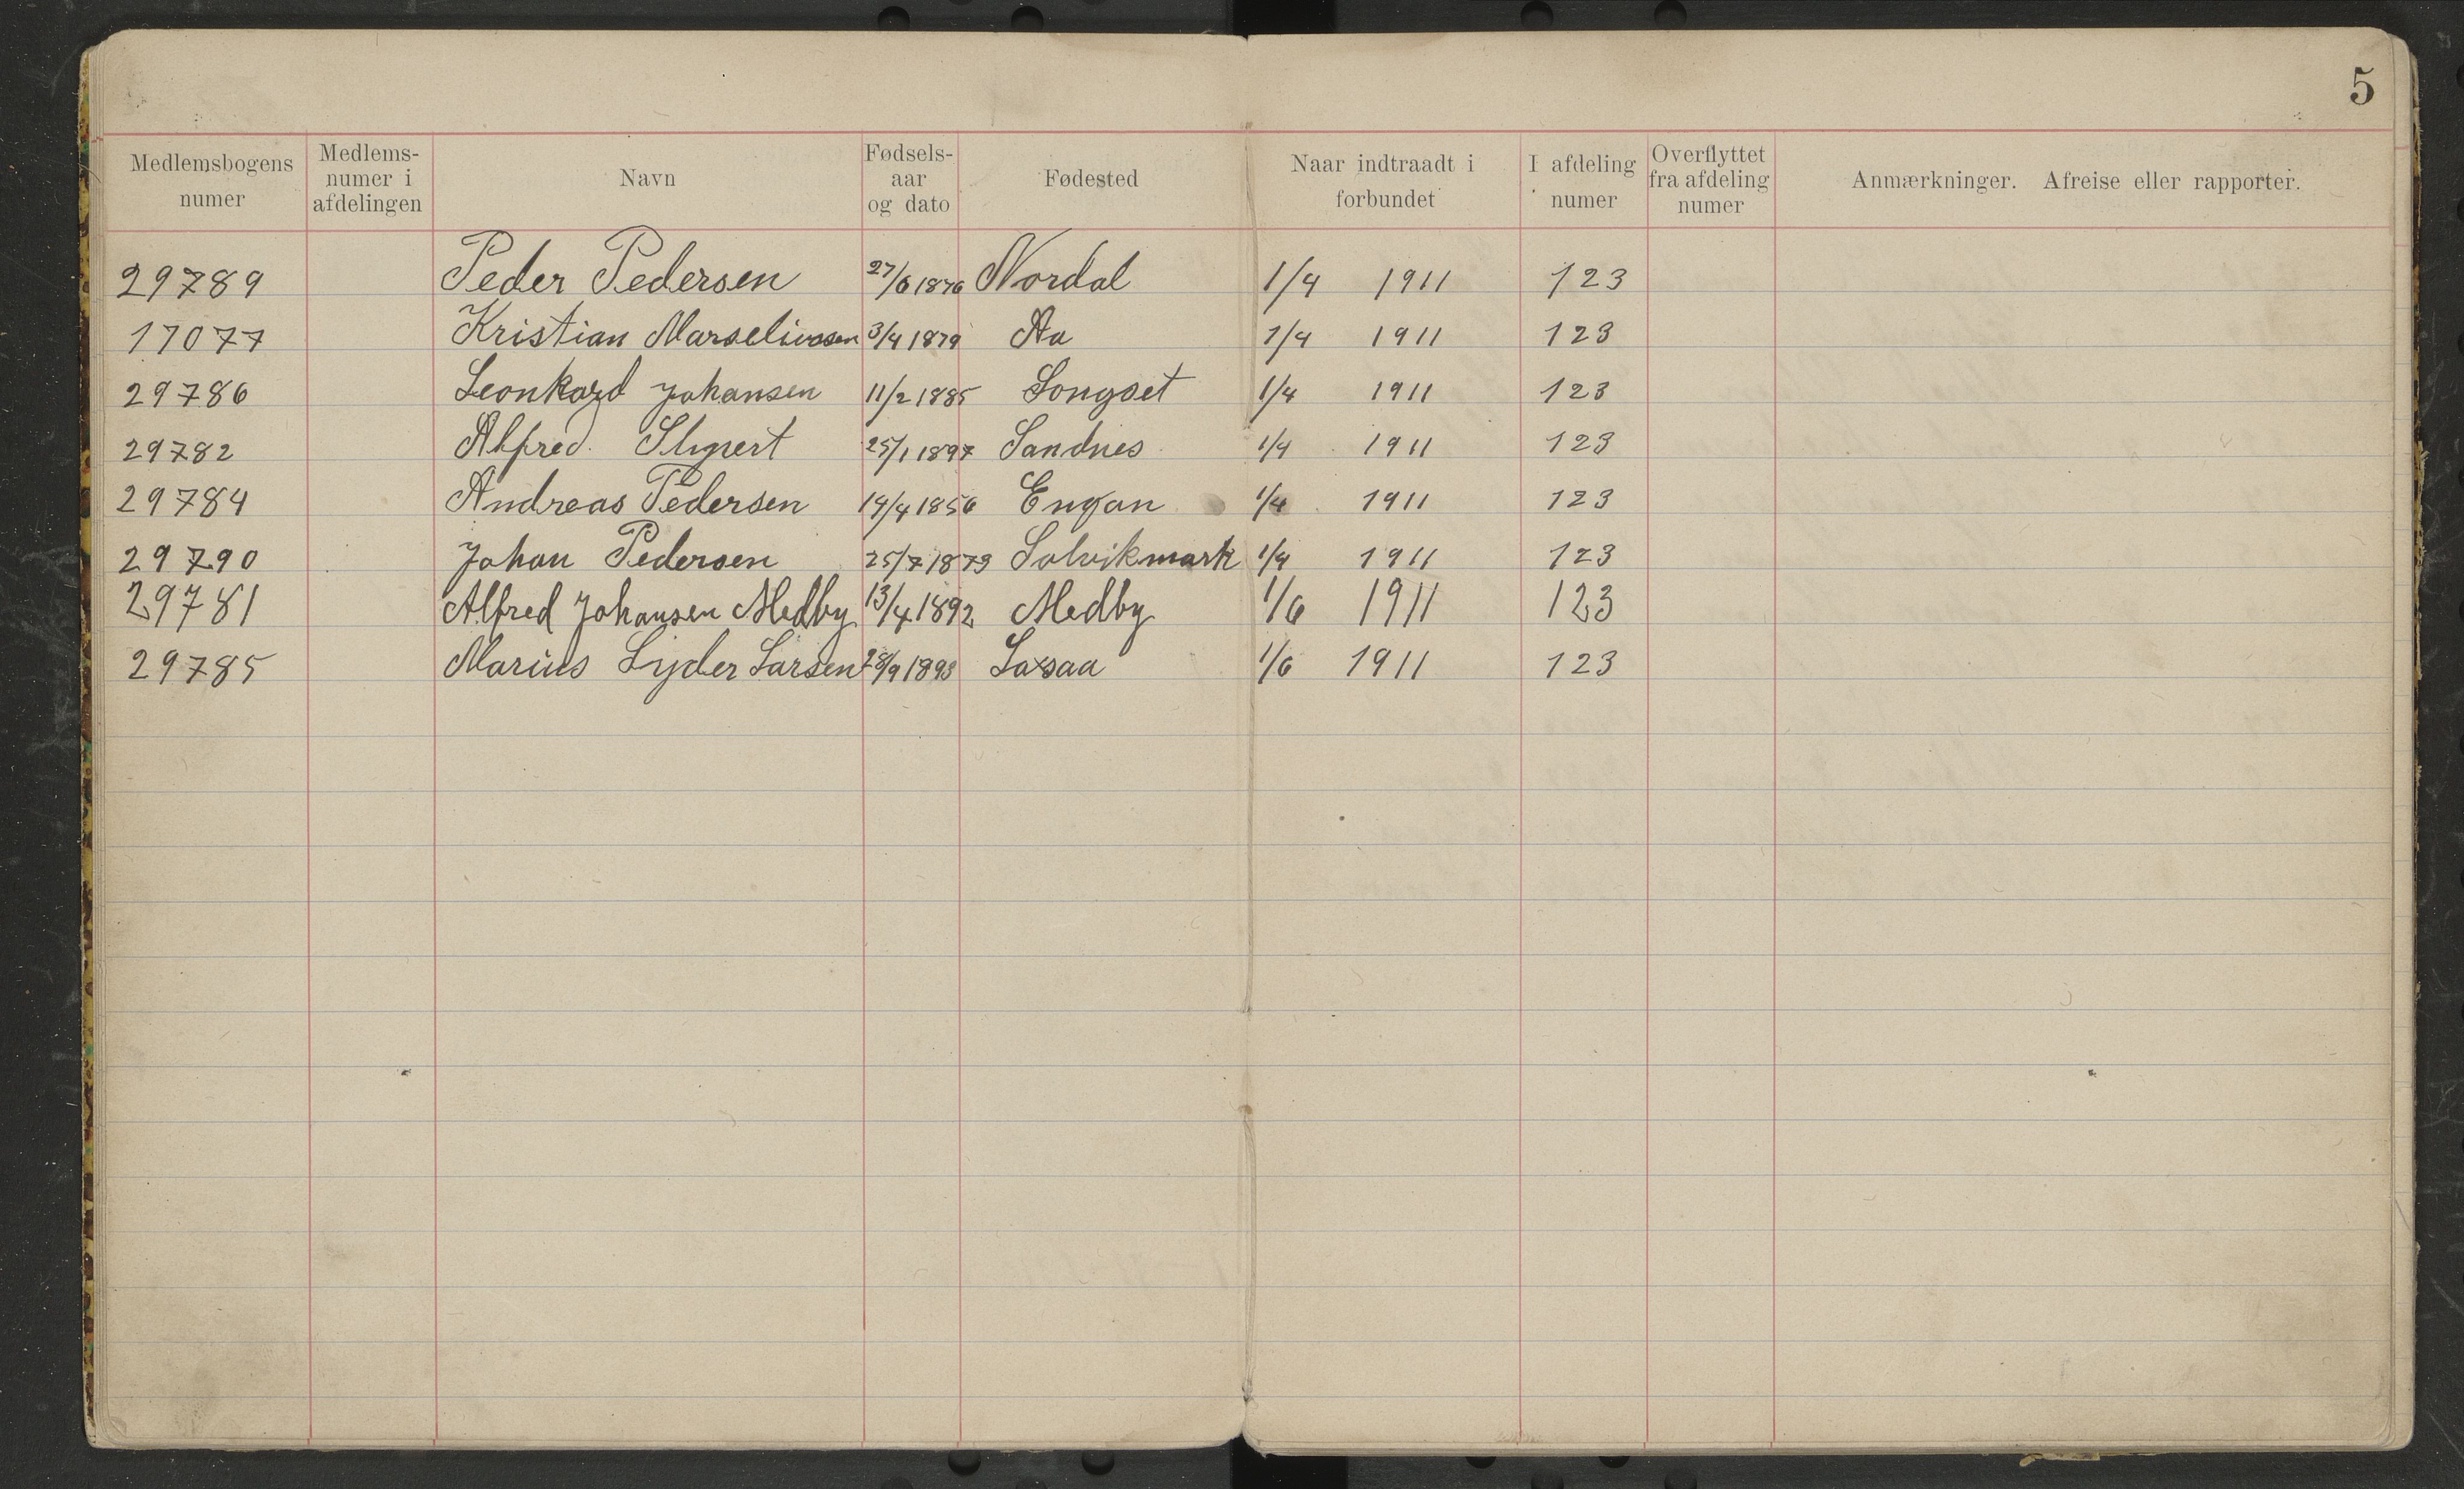 5
Medlemsbogens numer Medlems-numer i afdelingen Navn Fødsels-aar og dato Fødested Naar indtraadt i forbundet I afdeling numer Overflyttet fra afdeling numer Anmærkninger. Afreise eller rapporter.
29789 Peder Pedersen 27/6 1876 Nordal 1/4 1911 123
17077 Kristian Marseliussen 3/4 1879 Aa 1/4 1911 123
29786 Leonhard Johansen 11/2 1885 Songset 1/4 1911 123
29782 Alfred 25/1 1897 Sandnes 1/4 1911 123
29784 Andreas Pedersen 14/4 1856 Engan 1/4 1911 123
29790 Johan Pedersen 25/7 1879 Solvikmark 1/4 1911 123
29781 Alfred Johansen Medby 13/4 1892 Medby 1/6 1911 123
29785 Marius Lyder Larsen 28/9 1893 Laxaa 1/6 1911 123